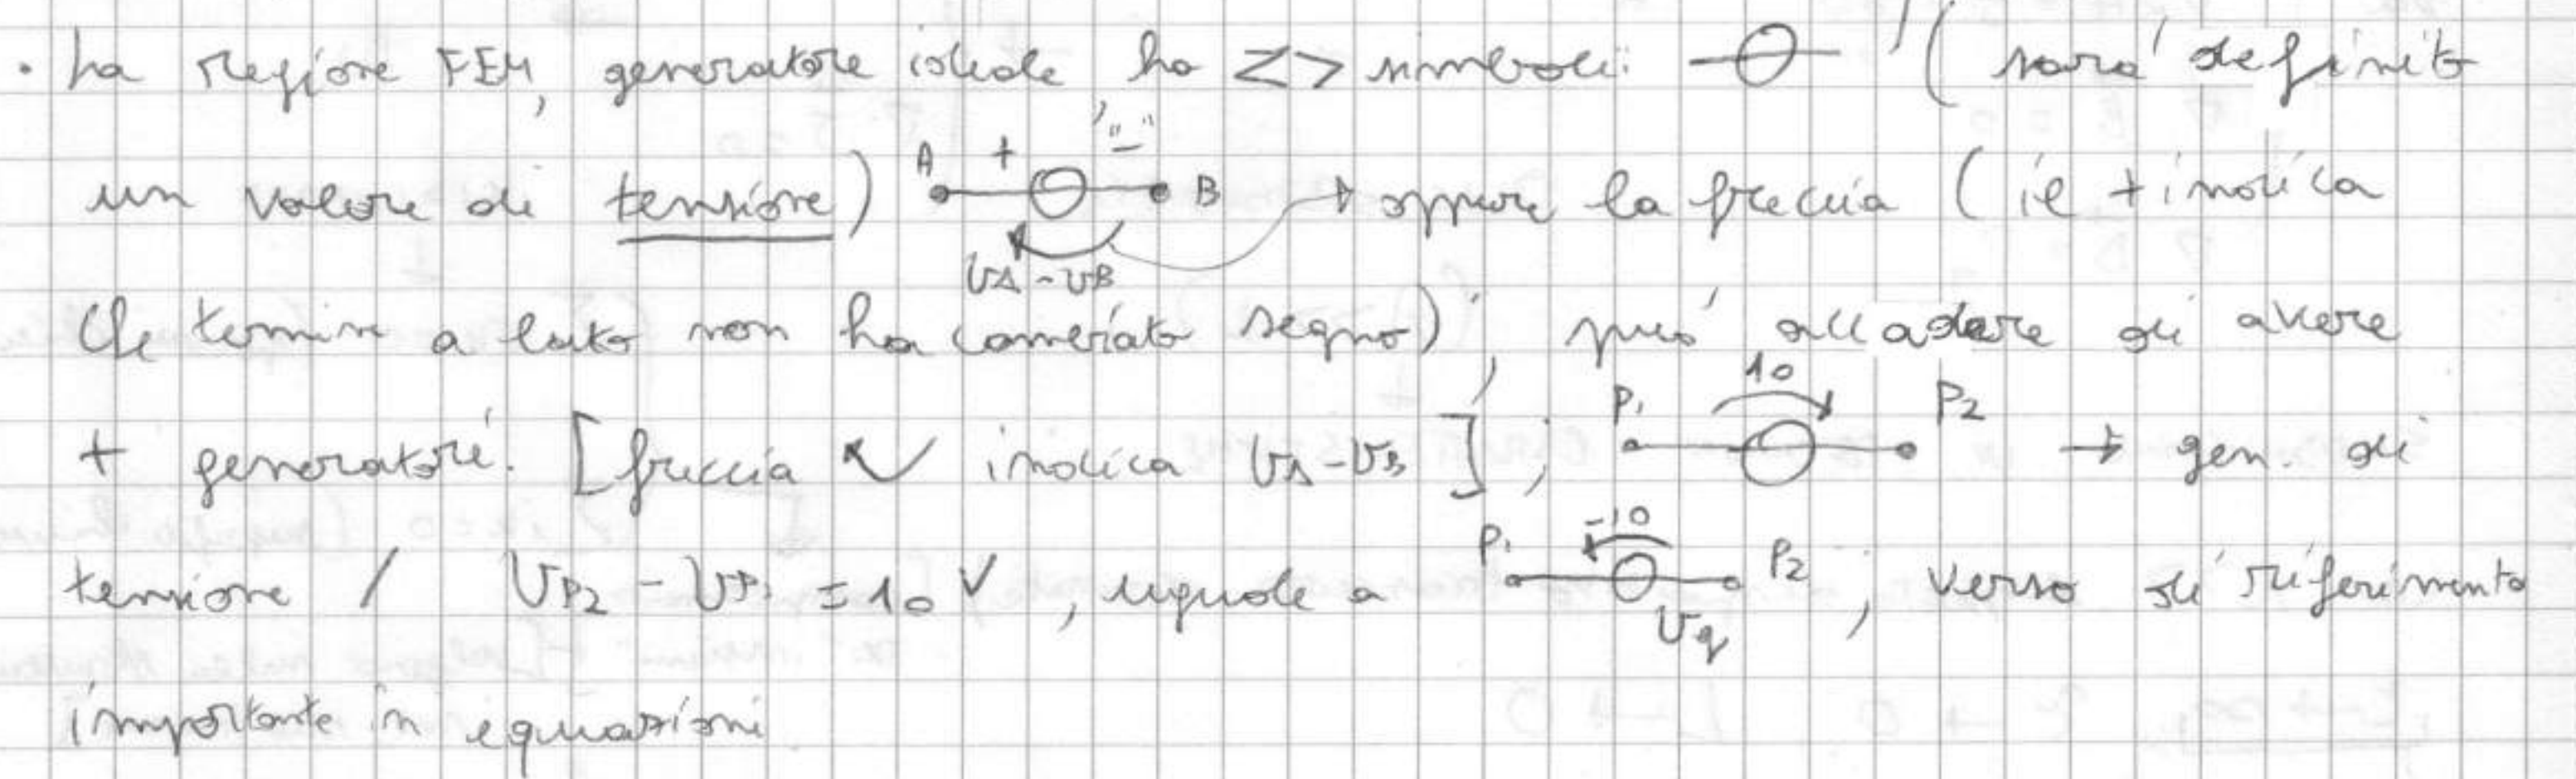 · La regione FEM, generatore ideale, ha <> simboli: (sarà definito
un valore di tensione) A + "-" B → oppure la freccia (il + indica
VA - VB
che termine a lato non ha cambiato segno); può accadere di avere
+ generatori. [freccia ↖ indica VA-VB]; P1 10 P2 → gen. di
tensione / VP2 - VP1 = 10 V, uguale a P1 -10 P2 Vg; verso di riferimento
importante in equazioni